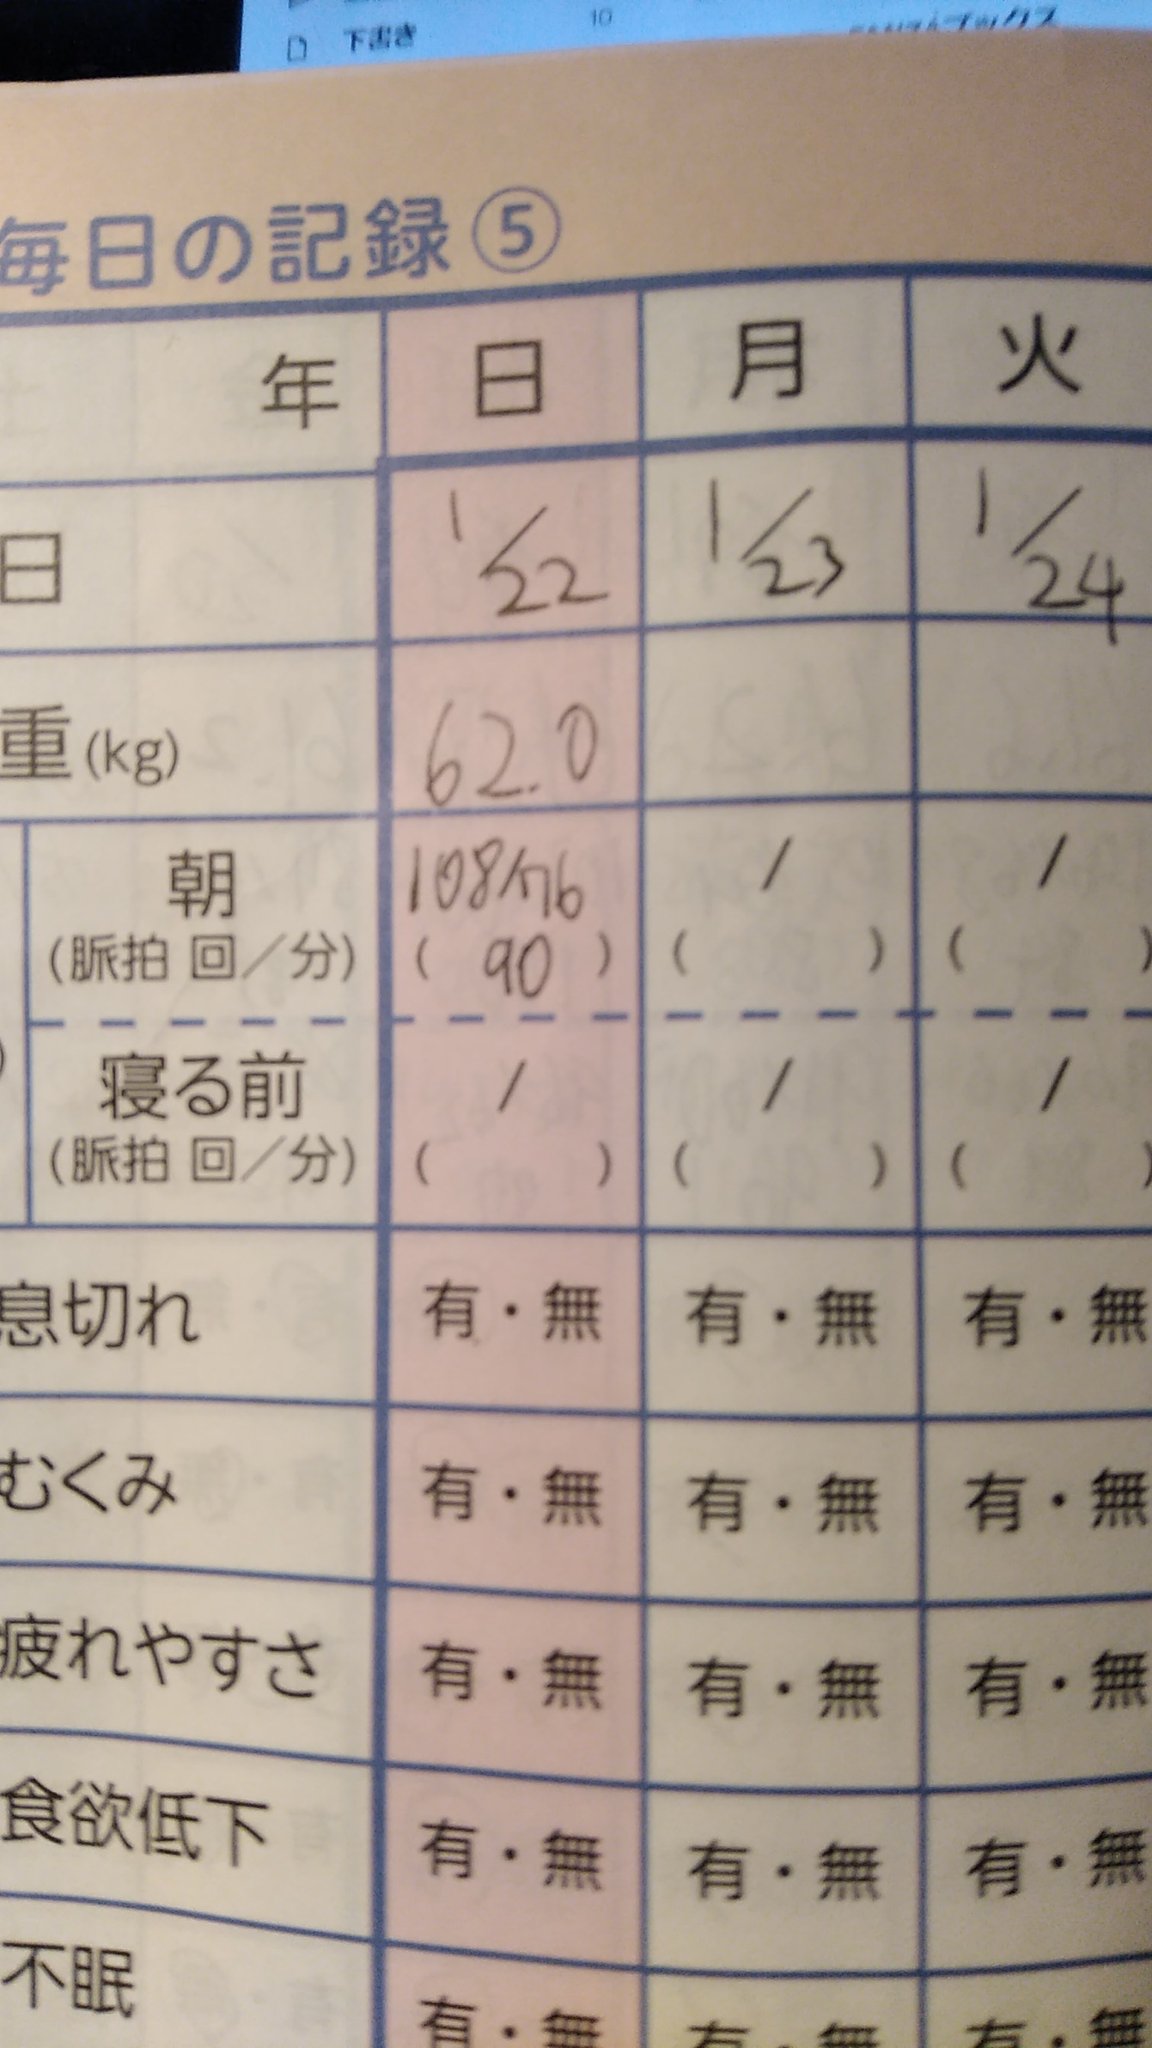 下書き
10
ブックス
毎日の記録⑤
年 日 月 火
日 1/22 1/23 1/24
重(kg) 62.0
朝 108/76 / /
(脈拍 回/分) ( 90 ) ( ) ( )
寝る前 / / /
(脈拍 回/分) ( ) ( ) ( )
息切れ 有・無 有・無 有・無
むくみ 有・無 有・無 有・無
疲れやすさ 有・無 有・無 有・無
食欲低下 有・無 有・無 有・無
不眠 有・無 有・無 有・無